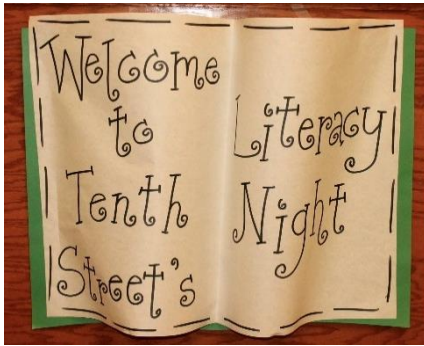 Welcome
to
Tenth
Street's
Literacy
Night